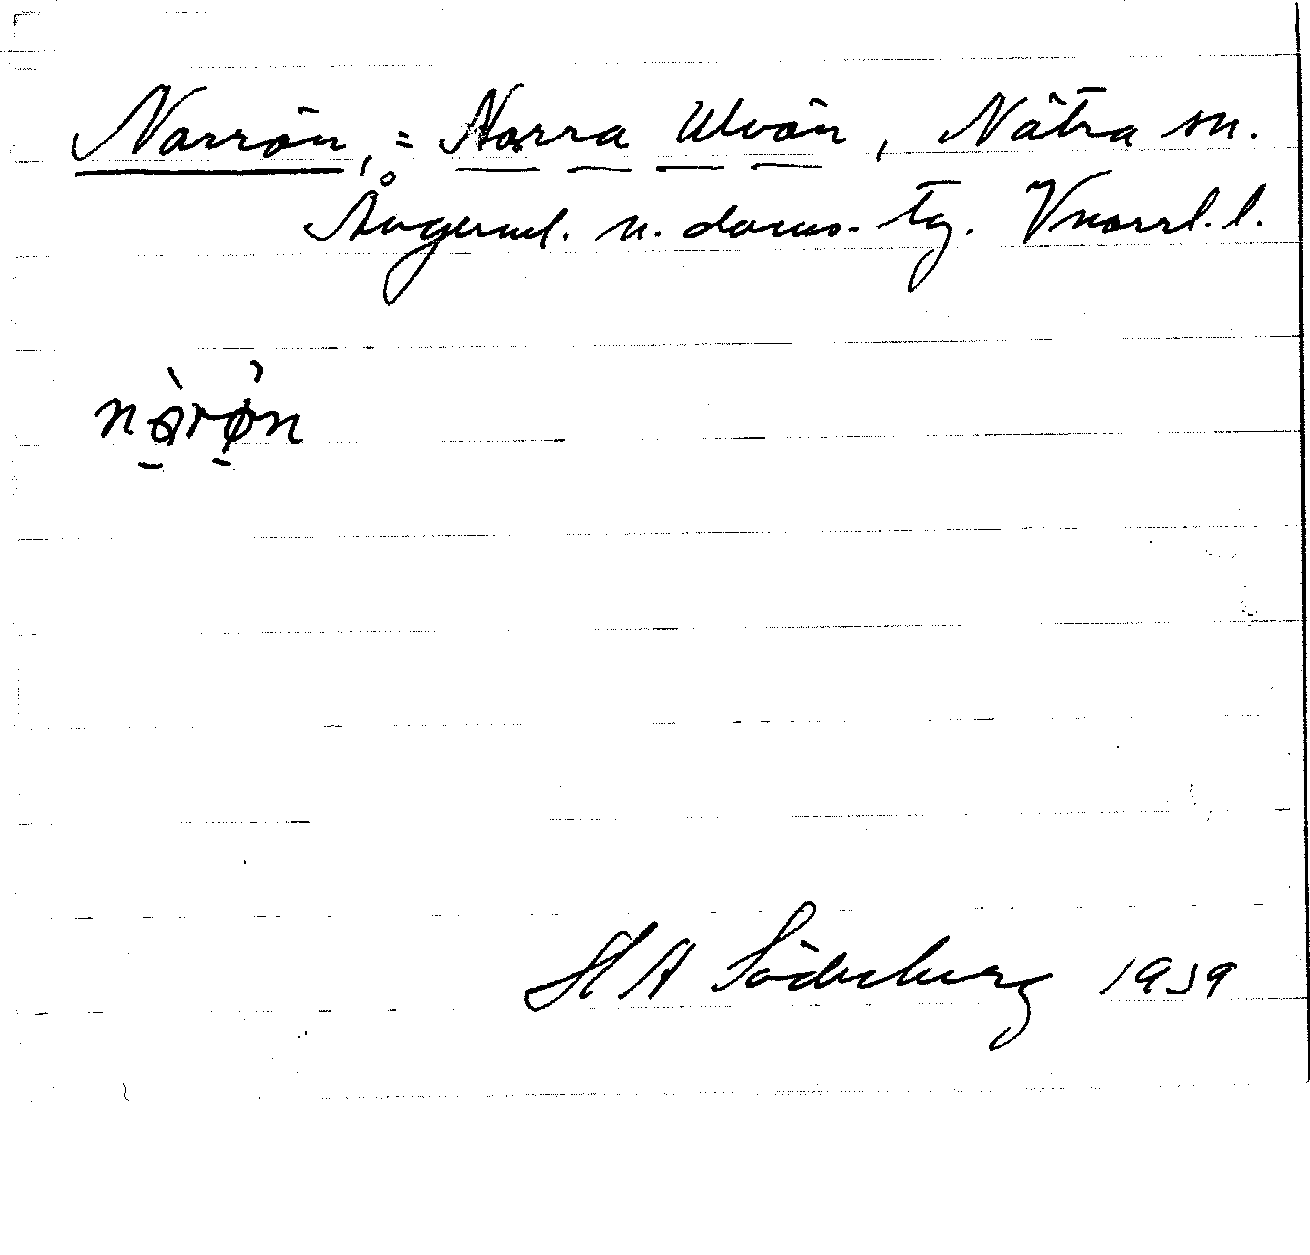 Norrön, = Norra Ulvön, Nätra sn.
Ångerml. n. doms. tg. Vnorrl. l.
nòrø̀n
H A Söderberg 1939